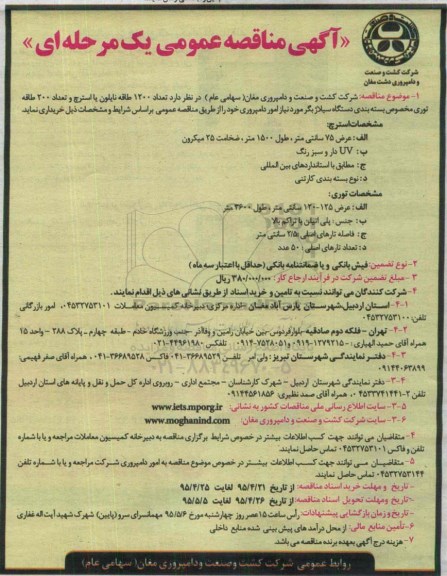 «آگهی مناقصه عمومی یک مرحله ای»
شرکت کشت و صنعت
و دامپروری دشت مغان
۱- موضوع مناقصه: شرکت کشت و صنعت و دامپروری مغان( سهامی عام ) در نظر دارد تعداد ۱۲۰۰ طاقه نایلون یا استرچ و تعداد ۲۰۰ طاقه
توری مخصوص بسته بندی دستگاه سیلاژ بگر مورد نیاز امور دامپروری خود را از طریق مناقصه عمومی براساس شرایط و مشخصات ذیل خریداری نماید.
مشخصات استرچ:
الف: عرض ۷۵ سانتی متر ، طول ۱۵۰۰ متر ، ضخامت ۲۵ میکرون
ب: UV دار و سبز رنگ
ج: مطابق با استانداردهای بین المللی
د: نوع بسته بندی کارتنی
مشخصات توری:
الف: عرض ۱۲۵-۱۲۰ سانتی متر ، طول ۳۶۰۰ متر
ب: جنس : پلی اتیلن با تراکم بالا
ج: فاصله تارهای اصلی ۲/۵ سانتی متر
د: تعداد تارهای اصلی : ۵۰ عدد
۲- نوع تضمین: فیش بانکی و یا ضمانتنامه بانکی (حداقل با اعتبار سه ماه )
۳- مبلغ تضمین شرکت در فرآیند ارجاع کار: ۳۸۰/۰۰۰/۰۰۰ ریال
۴- شرکت کنندگان می توانند نسبت به تامین و خرید اسناد از طریق نشانی های ذیل اقدام نمایند.
۴-۱- استان اردبیل شهرستان پارس آباد مغان - اداره مرکزی دبیرخانه کمیسیون معاملات ۰۴۵۳۲۷۵۳۱۰۱ امور بازرگانی
تلفن ۰۴۵۳۲۷۵۳۱۰۰
۴-۲- تهران - فلکه دوم صادقیه - بلوار فردوس بین خیابان رامین و وفاآذر جنب ورزشگاه خادم - طبقه چهارم ـ پلاک ۲۸۸ - واحد ۱۵
همراه آقای حمید الهیاری : ۱۲۷۹۲۱۵-۰۹۱۹ و ۷۵۲۸۰۵۱-۰۹۱۴ تلفکس ۴۴۹۶۱۹۸۰-۰۲۱
۳-۳- دفتر نمایندگی شهرستان تبریز: ولی امر تلفن ۳۶۶۸۹۵۲۹-۰۴۱ فاکس ۳۶۶۸۹۵۲۸-۰۴۱ ، همراه آقای صفر فهیمی:
۰۹۱۴۴۰۶۳۸۹۹
۳-۴- دفتر نمایندگی شهرستان اردبیل - شهرک کارشناسان - مجتمع اداری - روبروی اداره کل حمل و نقل و پایانه های استان اردبیل
تلفن ۲-۰۴۵۳۳۷۴۱۴۴۱ همراه آقای صمد نظیری: ۰۹۱۴۴۵۶۱۸۵۶
۳-۵- سایت اطلاع رسانی ملی مناقصات کشور به نشانی: www.iets.mporg.ir
۳-۶- سایت شرکت کشت و صنعت و دامپروری مغان: www.moghanind.com
۴- متقاضیان می توانند جهت کسب اطلاعات بیشتر در خصوص شرایط برگزاری مناقصه به دبیرخانه کمیسیون معاملات مراجعه و یا با شماره
تلفن و فاکس ۰۴۵۳۲۷۵۳۱۰۱ تماس حاصل نمایند.
۵- متقاضیان می توانند جهت کسب اطلاعات بیشتر در خصوص موضوع مناقصه به امور دامپروری شرکت مراجعه و یا با شماره تلفن
۰۴۵۳۲۷۵۳۱۴۴ تماس حاصل نمایند.
- تاریخ و مهلت خرید اسناد مناقصه: از تاریخ ۹۵/۴/۲۱ لغایت ۹۵/۴/۲۵
- تاریخ ومهلت تحویل اسناد مناقصه: از تاریخ ۹۵/۴/۲۶ لغایت ۹۵/۵/۵
- تاریخ و زمان بازگشایی پیشنهادات: رأس ساعت ۱۵ عصر روز چهارشنبه مورخ ۹۵/۵/۶ مهمانسرای سرو (پایین) شهرک شهید آیت اله غفاری
۶- تأمین منابع مالی: از محل درآمد های پیش بینی شده منابع داخلی
۷- هزینه درج آگهی بعهده برنده مناقصه می باشد.
روابط عمومی شرکت کشت وصنعت ودامپروری مغان( سهامی عام)